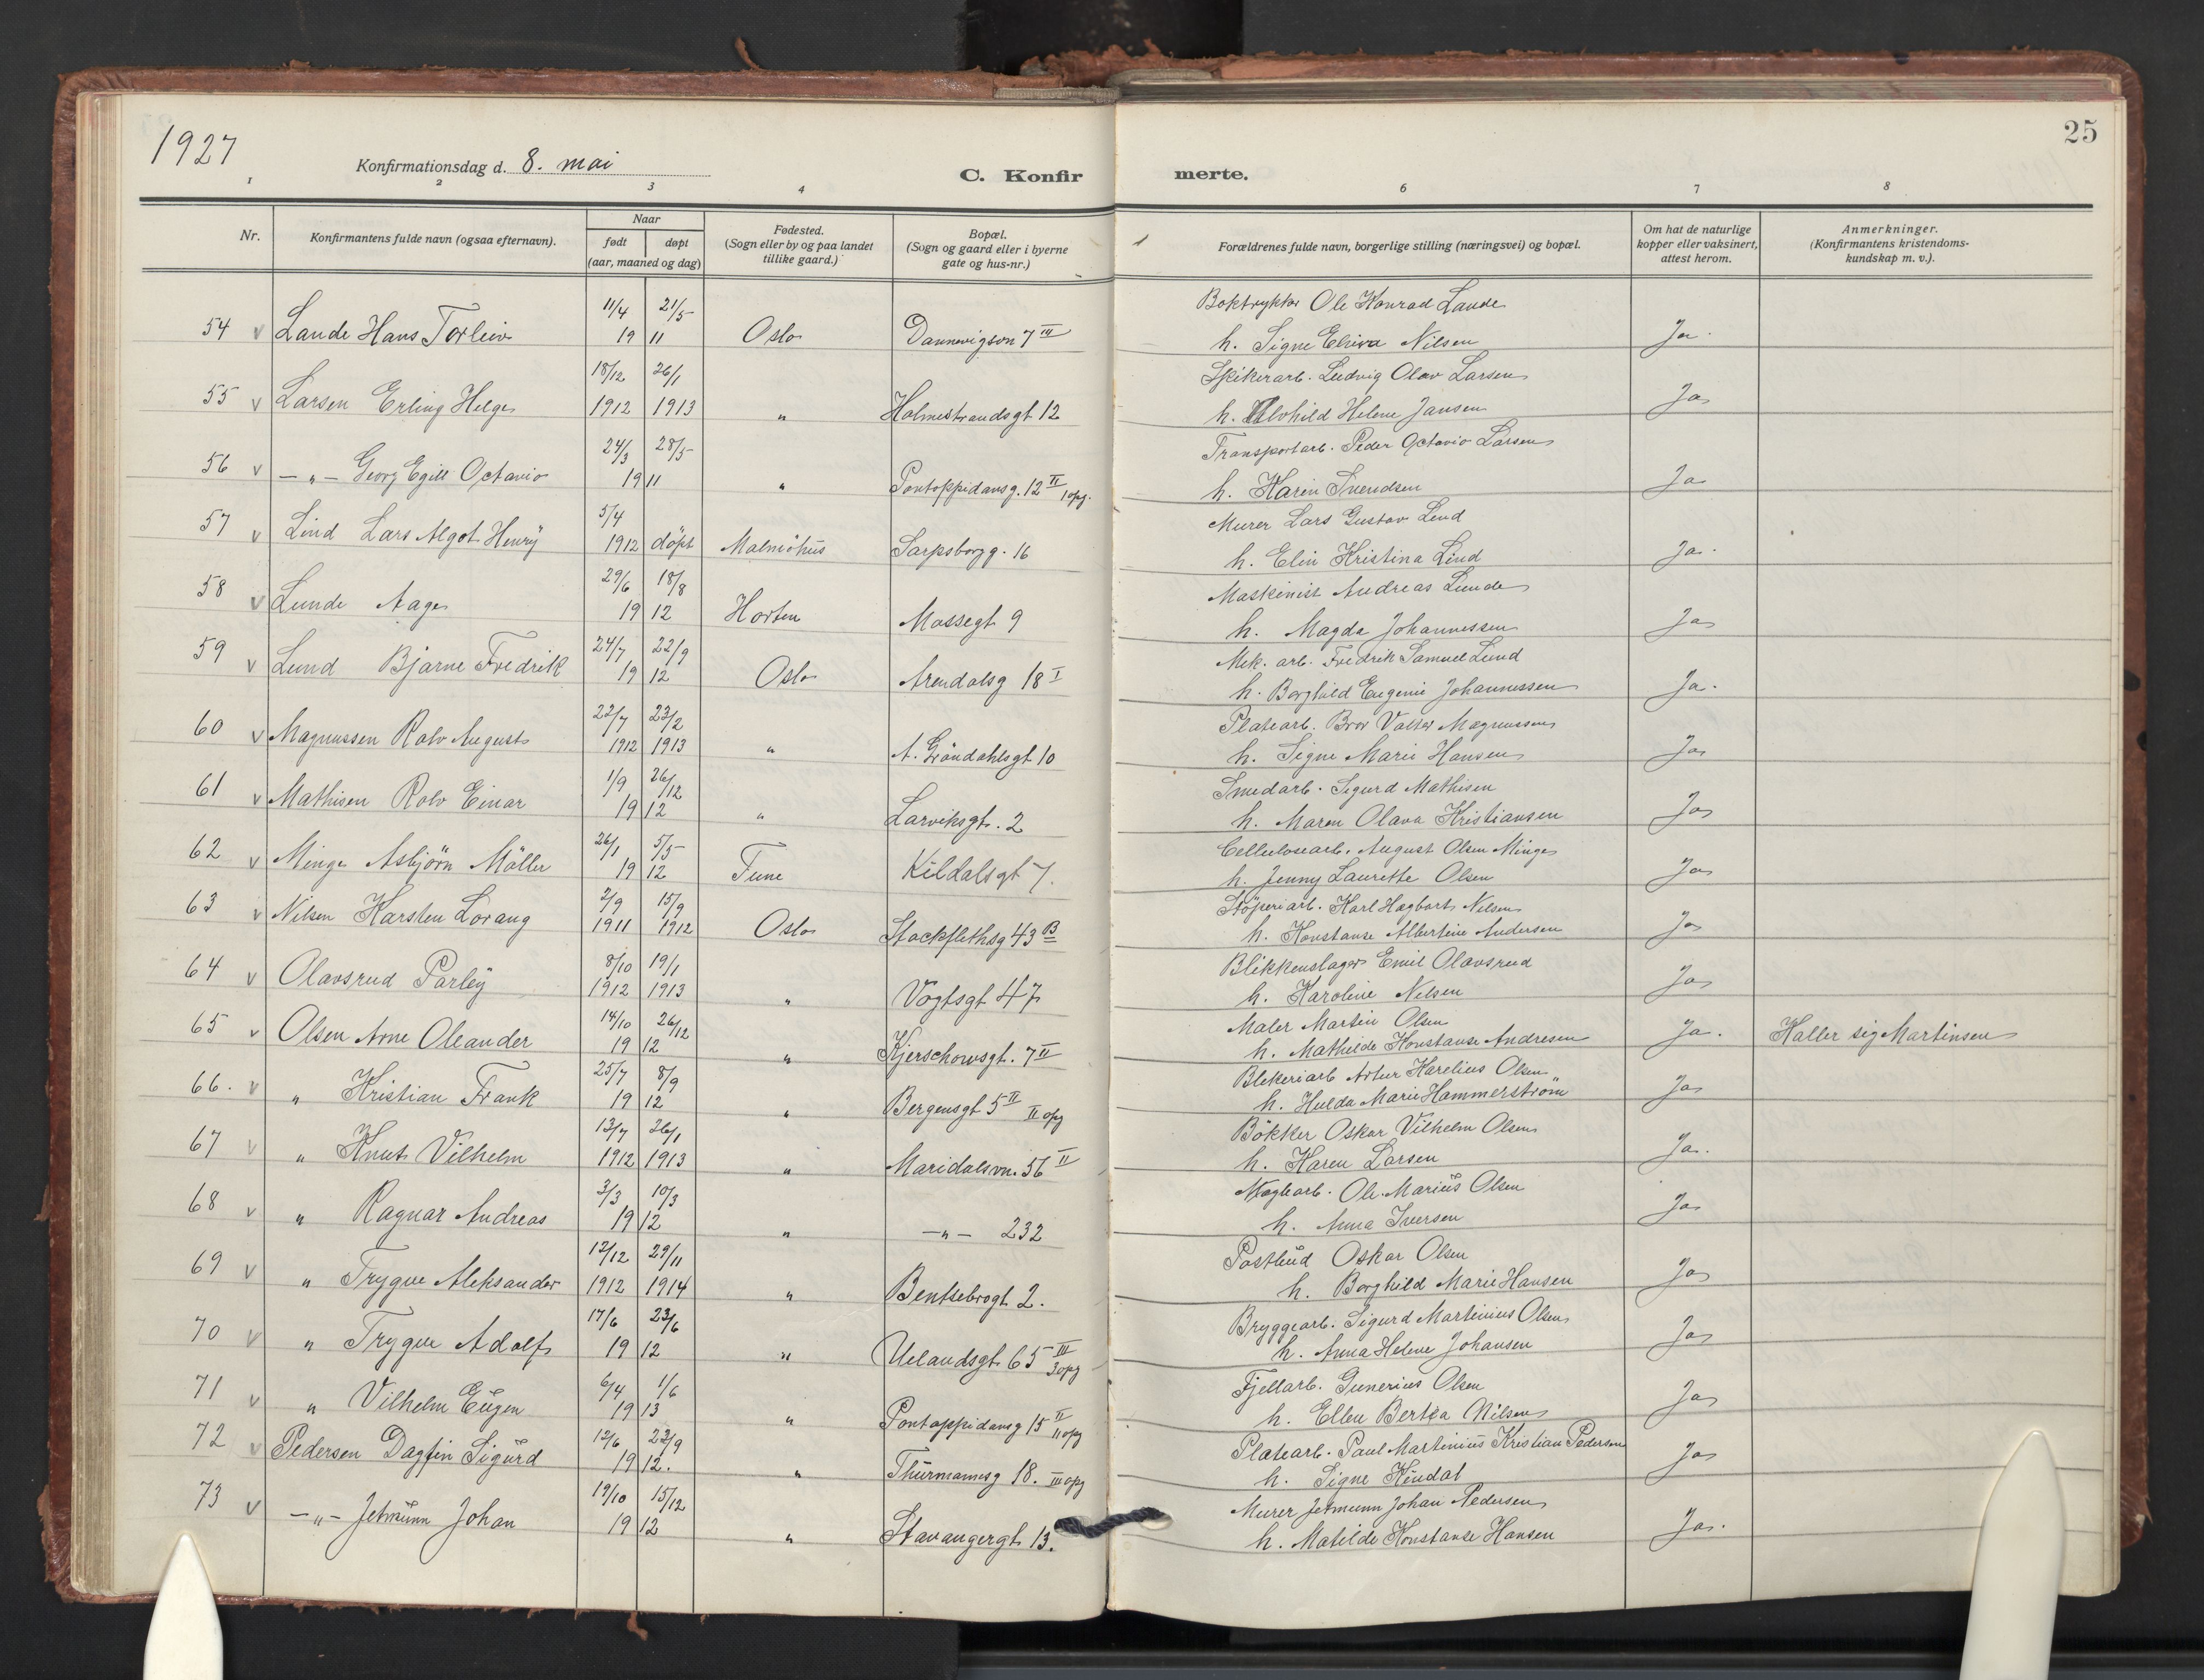 1927
25
Konfirmationsdag d. 8. mai
C. Konfirmerte.
1 2 3 4 6 7 8
Nr.
Konfirmantens fulde navn (ogsaa efternavn).
Naar
født døpt
(aar, maaned og dag)
Fødested.
(Sogn eller by og paa landet
tillike gaard.)
Bopæl.
(Sogn og gaard eller i byerne
gate og hus-nr.)
Forældrenes fulde navn, borgerlige stilling (næringsvei) og bopæl.
Om hat de naturlige
kopper eller vaksinert,
attest herom.
Anmerkninger.
(Konfirmantens kristendoms-
kundskap m. v.).
11/4 21/5 Boktrykker Ole Konrad Lande
54 v Lande Hans Torleiv 19 11 Oslo Dannevigsvn 7 III h. Signe Nilsen Ja.
18/12 26/1 Ludvig Olav Larsen
55 v Larsen Erling Helge 1912 1913 " Holmestrandsgt 12 h. Alvhild Helene Jansen Ja
24/3 28/5 Transportarb. Peder Octavio Larsen
56 v —"— Georg Egill Octavio 19 11 " Pontoppidansg. 12 II 1 opg. h. Karin Svendsen Ja
5/4 Murer Lars Gustav Lind
57 v Lind Lars Algot Henry 1912 döpt Malmöhus Sarpsborgg. 16 h. Elin Kristina Lind Ja.
29/6 18/8 Maskinist Andreas Lunde
58 v Lunde Aage 19 12 Horten Mossegt 9 h. Magda Johannessen Ja
24/7 22/9 Mek. arb. Fredrik Samuel Lund
59 v Lund Bjarne Fredrik 19 12 Oslo Arendalsg 18 I h. Borghild Eugenie Johannessen Ja.
22/7 23/2 Platearb. Bror Valter Magnussen
60 v Magnussen Rolv August 1912 1913 " A. Gröndahlsgt 10 h. Signe Marie Hansen Ja
1/9 26/12 Smedarb. Sigurd Mathisen
61 v Mathisen Rolv Einar 19 12 " Larviksgt. 2 h. Maren Olava Kristiansen Ja
26/1 5/5 Cellulosearb. August Olsen Minge
62 v Minge Asbjörn Möller 19 12 Tune Kildalsgt 7. h. Jenny Laurette Olsen Ja
2/9 15/9 Stöperiarb. Karl Hagbart Nilsen
63 v Nilsen Karsten Lorang 1911 1912 Oslo Stockflethsg 43 B h. Konstanse Albertine Andersen Ja
8/10 19/1 Blikkenslager Emil Olavsrud
64 v Olavsrud Parley 1912 1913 " Vogtsgt 47 h. Karoline Nilsen Ja
14/10 26/12 Maler Martin Olsen
65 v Olsen Arne Oleander 19 12 " Kjerschowsgt. 7 II h. Mathilde Konstanse Andresen Ja. Kaller sig Martinsen
25/7 8/9 Blekeriarb Artur Karelius Olsen
66. v " Kristian Frank 19 12 " Bergensgt 5 II II opg h. Hulda Marie Hammerström Ja
13/7 26/1 Bökker Oskar Vilhelm Olsen
67 v " Knut Vilhelm 1912 1913 " Maridalsvn. 56 II h. Karen Larsen Ja.
3/3 10/3 Ole Marius Olsen
68 v " Ragnar Andreas 19 12 " —"— 232 h. Anna Iversen Ja
12/12 29/11 Postbud Oskar Olsen
69 v " Trygve Aleksander 1912 1914 " Bentsebrogt 2. h. Borghild Marie Hansen Ja
17/6 23/6 Bryggearb. Sigurd Martinius Olsen
70 v " Trygve Adolf 19 12 " Uelandsgt 65 III 3 opg h. Anna Helene Johansen Ja
6/4 1/6 Fjellarb. Gunerius Olsen
71 v " Vilhelm Eugen 19 13 " Pontoppidansg 15 II II opg h. Ellen Bertea Nilsen Ja
12/6 22/9 Platearb. Paul Martinius Kristian Pedersen
72 v Pedersen Dagfin Sigurd 19 12. " Thurmannsg 18. III opg h. Signe Kindal Ja
19/10 15/12 Murer Jetmunn Johan Pedersen
73 v —"— Jetmunn Johan 19 12 " Stavangergt 13. h. Matilde Konstanse Hansen Ja.